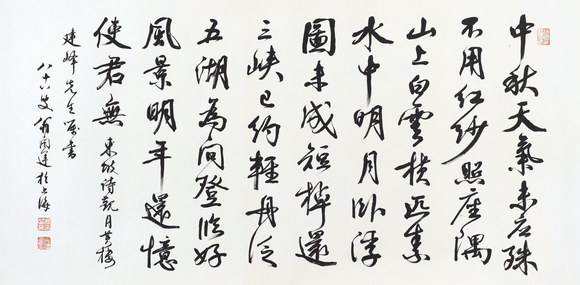 中秋天氣未應殊
不用紅紗照座隅
山上白雲橫匹素
水中明月臥浮
圖未成短棹還
三峽已約輕舟泛
五湖為問登臨好
風景明年還憶
使君無
東坡詩觀月黃樓
建峰先生屬書
八十八叟翁闓運於上海